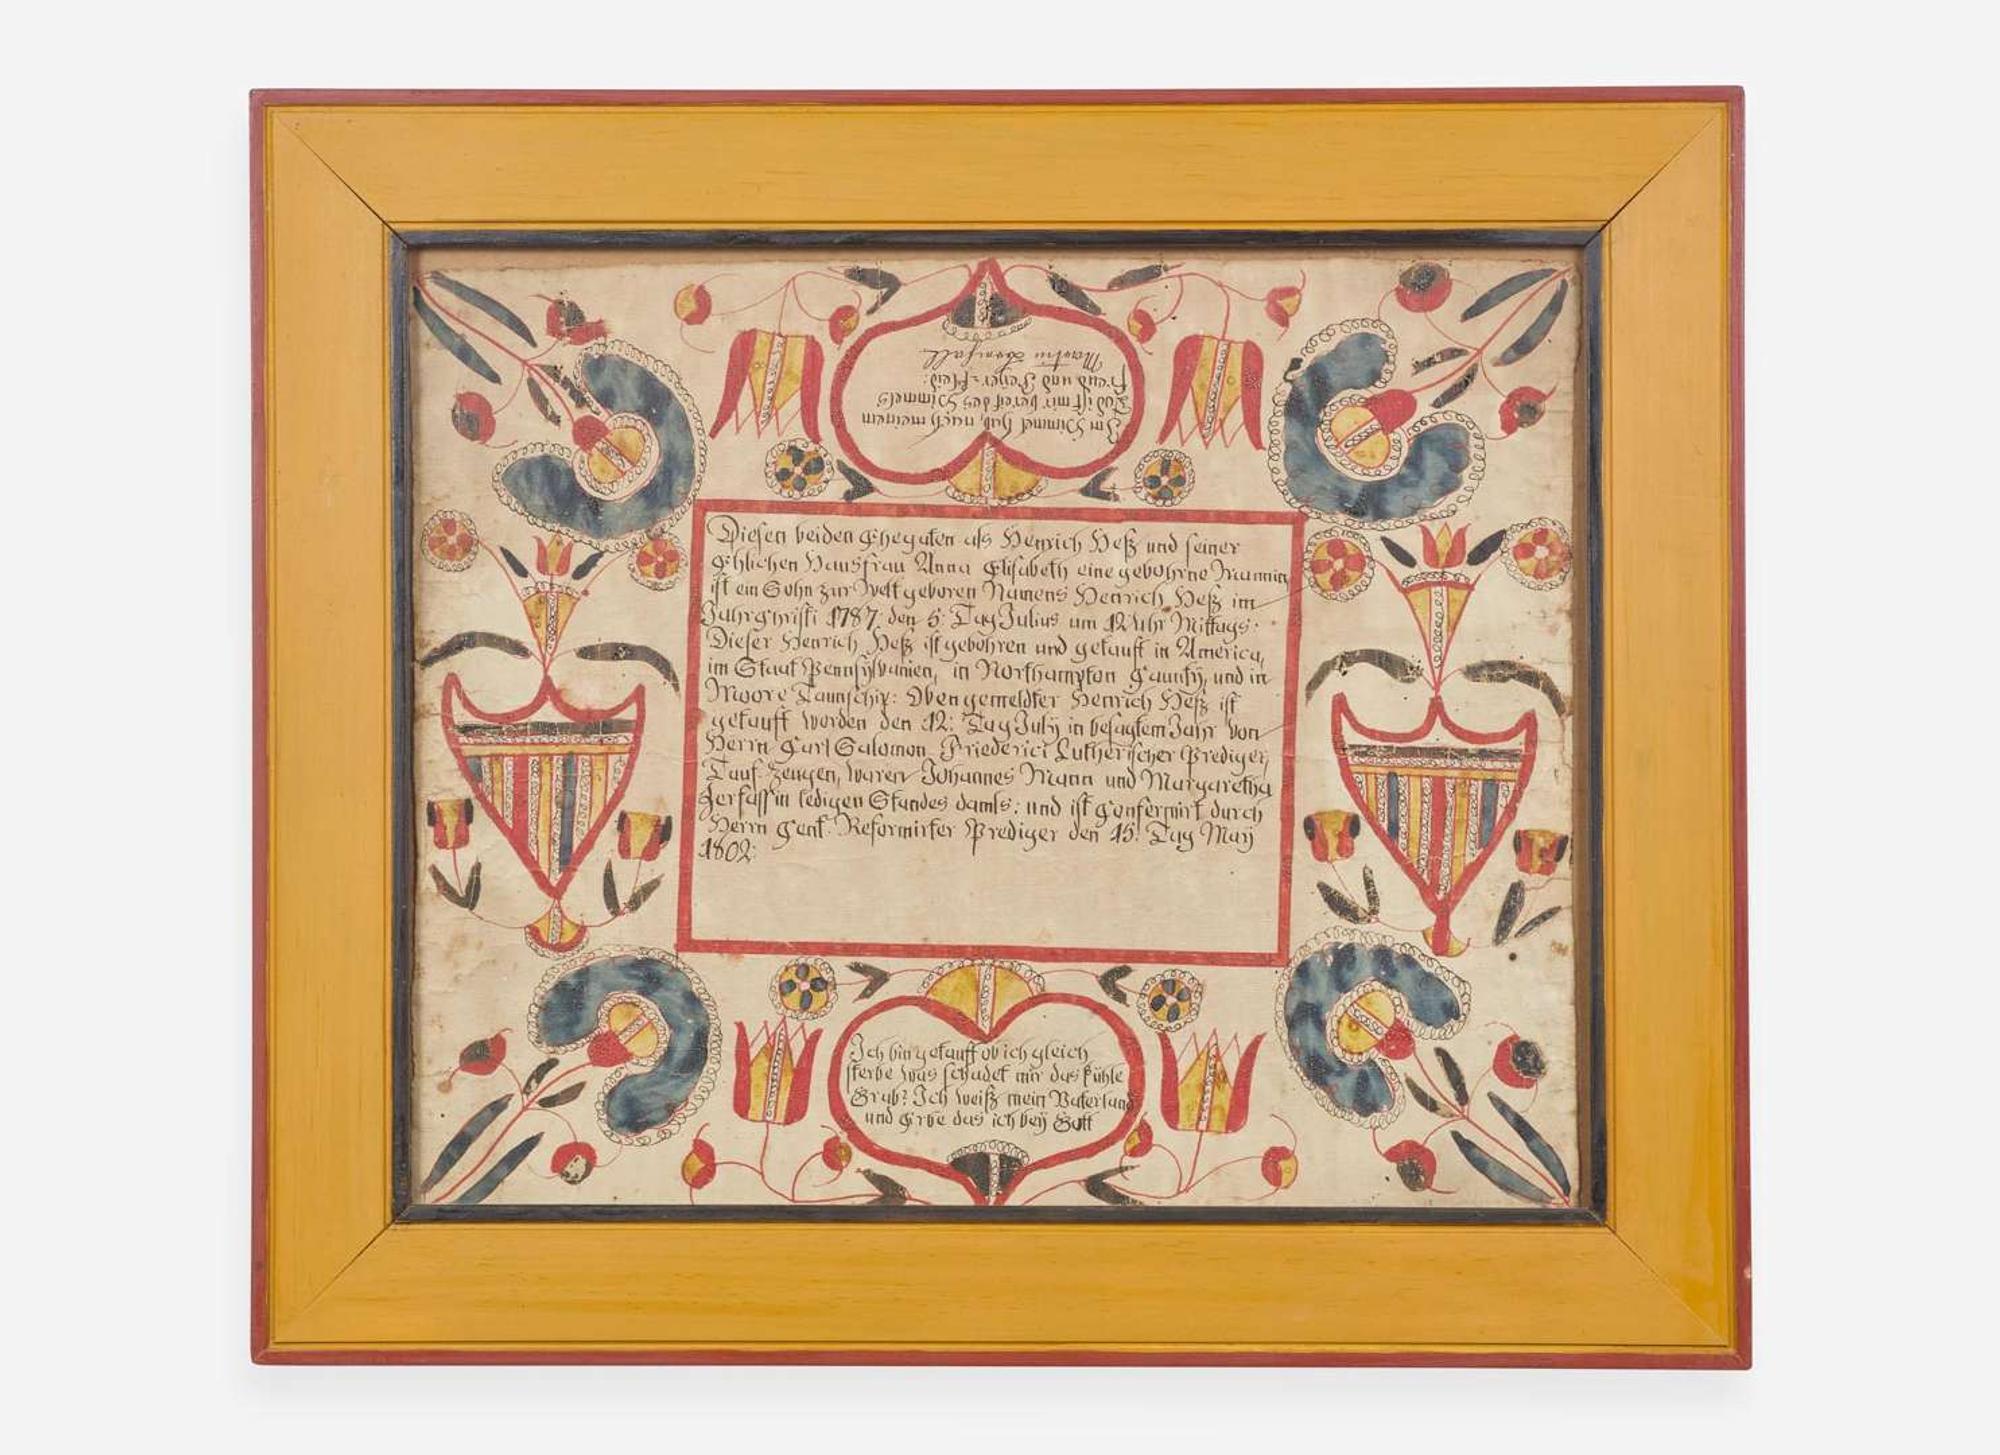 Im Himmel hab, nach meinem
Tod ist mir bereit des Himmels
freud und Feyer=Kleid:
Martin
Diesen beiden Ehegaten als Henrich Heß und seiner
Ehlichen Hausfrau Anna Elisabeth eine gebohrne
ist ein Sohn zur Welt geboren Namens Henrich Heß im
Jahr Christi 1787: den 5: Tag Julius um 12 Uhr Mittags:
Dieser Henrich Heß ist gebohren und getauft in America,
im Staat Pennsylvanien, in Northampton Caunty, und in
Moore Taunschip: Oben gemeldter Henrich Heß ist
getauft worden den 12: Tag July in besagtem Jahr von
Herrn Carl Salomon Friederici Lutherischer Prediger,
Tauf-Zeugen, waren Johannes Mann und Margaretha
ledigen Standes damls: und ist Confermirt durch
Herrn Reformirter Prediger den 15: Tag May
1802:
Ich bin getauft ob ich gleich
sterbe was schadet mir das kühle
Grab? Ich weiß mein Vaterland
und Erbe das ich bey Gott